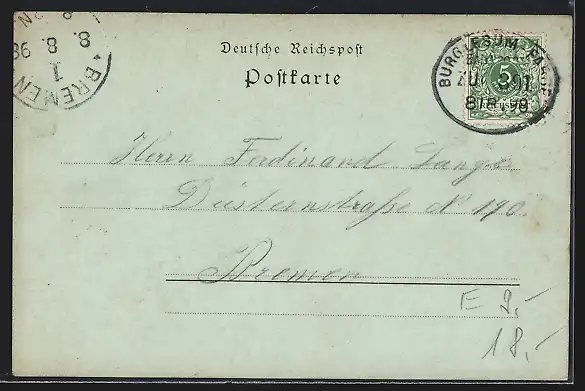 BREMEN
1
8. 8. 98
Deutsche Reichspost
Postkarte
BURGLESUM-FARGE
BAHNPOST
ZUG 301
8 8 98
5
Herrn Ferdinand Lange
Düsternstraße No 190.
Bremen
E 9,-
18,-